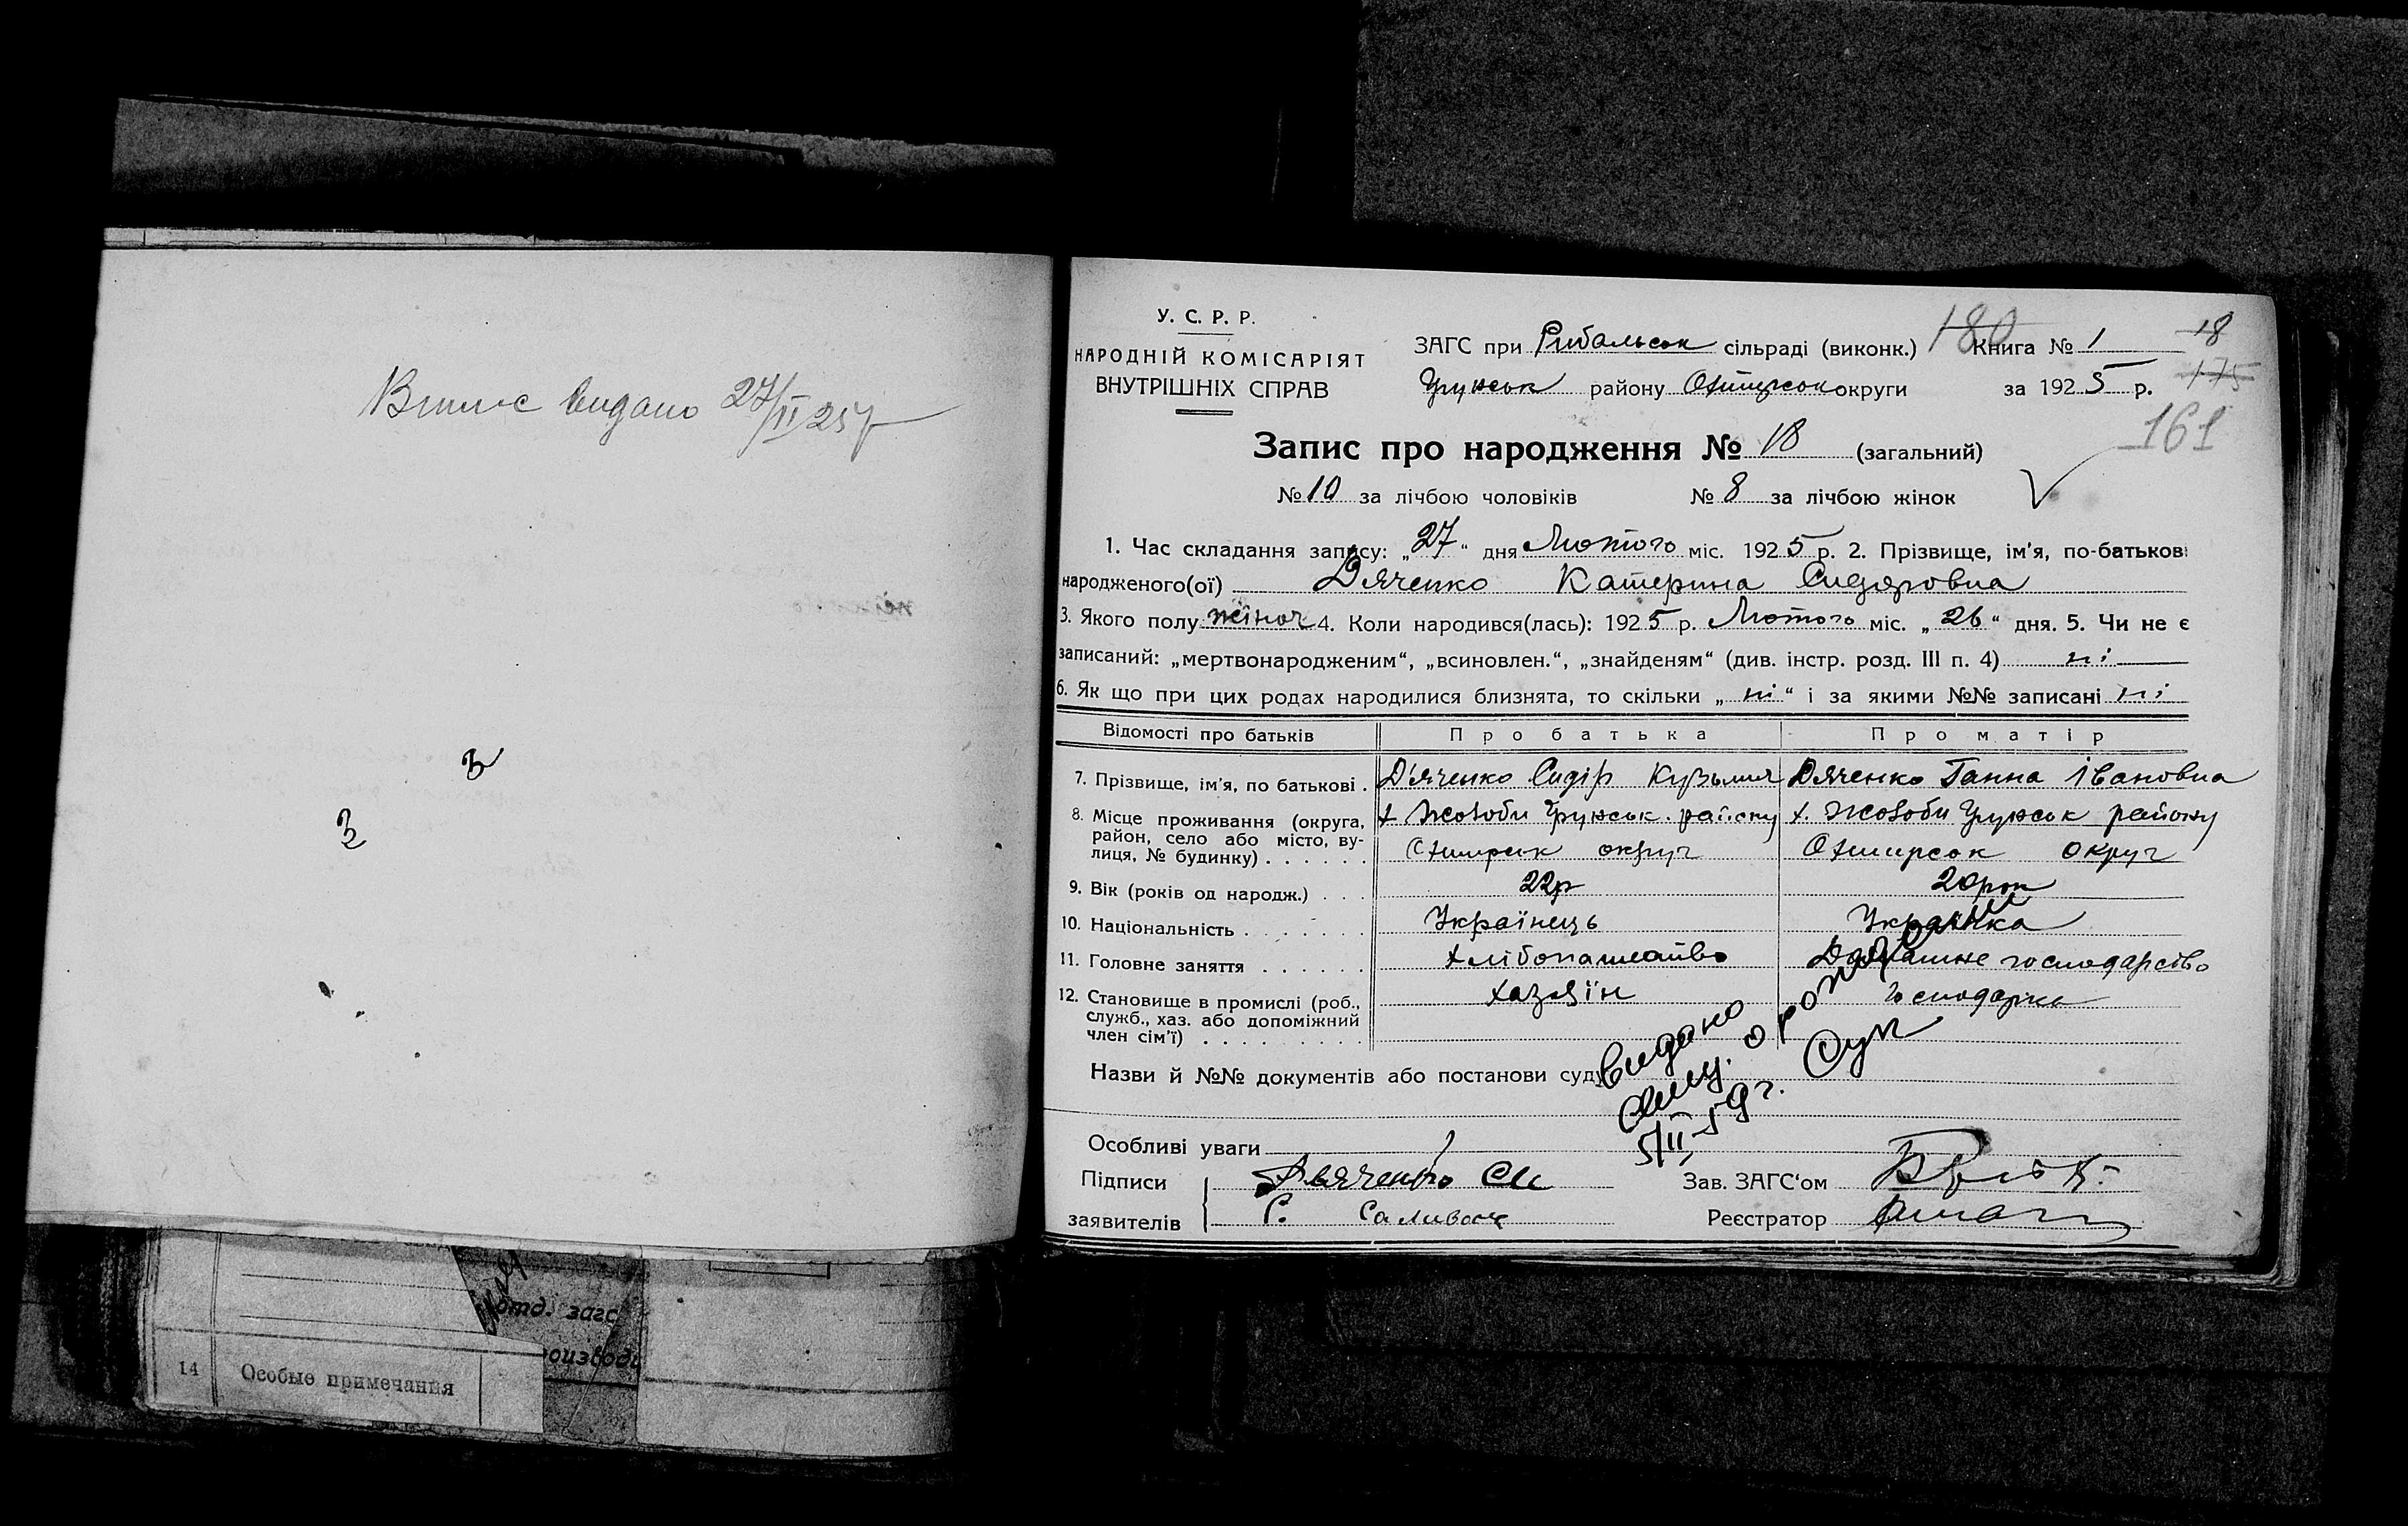 Випис видано 27/II 25 р
З
З
отд. загс
14 Особые примечания
У. С. Р. Р.
НАРОДНІЙ КОМІСАРІЯТ
ВНУТРІШНІХ СПРАВ
ЗАГС при Рибальськ сільраді (виконк.) 180 Книга № 1 18
Грунськ району Охтирськ округи за 1925 р. 175
161
Запис про народження № 18 (загальний)
№ 10 за лічбою чоловіків № 8 за лічбою жінок
1. Час складання запису: „27“ дня Лютого міс. 1925 р. 2. Прізвище, ім'я, по-батькові
народженого(ої) Дяченко Катерина Сидоровна
3. Якого полу жіноч 4. Коли народився(лась): 1925 р. Лютого міс. „26“ дня. 5. Чи не є
записаний: „мертвонародженим“, „всиновлен.“, „знайденям“ (див. інстр. розд. III п. 4) ні
6. Як що при цих родах народилися близнята, то скільки „ні“ і за якими №№ записані ні
Відомості про батьків Про батька Про матір
7. Прізвище, ім'я, по батькові . Д'яченко Сидір Кузьмич Дяченко Ганна Івановна
8. Місце проживання (округа, х Жовоби Грунськ. району х. Жовоби Грунськ району
район, село або місто, ву-
лиця, № будинку) . . . . . . Охтирськ округ Охтирськ округ
9. Вік (років од народж.) . . . 22 р 20 рок
10. Національність . . . . . . . Українець Українка
11. Головне заняття . . . . . . хлібопашство Домашне господарство
12. Становище в промислі (роб., хазяїн господарка
служб., хаз. або допоміжний
член сім'ї) . . . . . . . . .
Назви й №№ документів або постанови суду
видано
о рождении
5/II-59 г.
Особливі уваги
Підписи Дьяченко Зав. ЗАГС'ом
заявителів С. Реєстратор